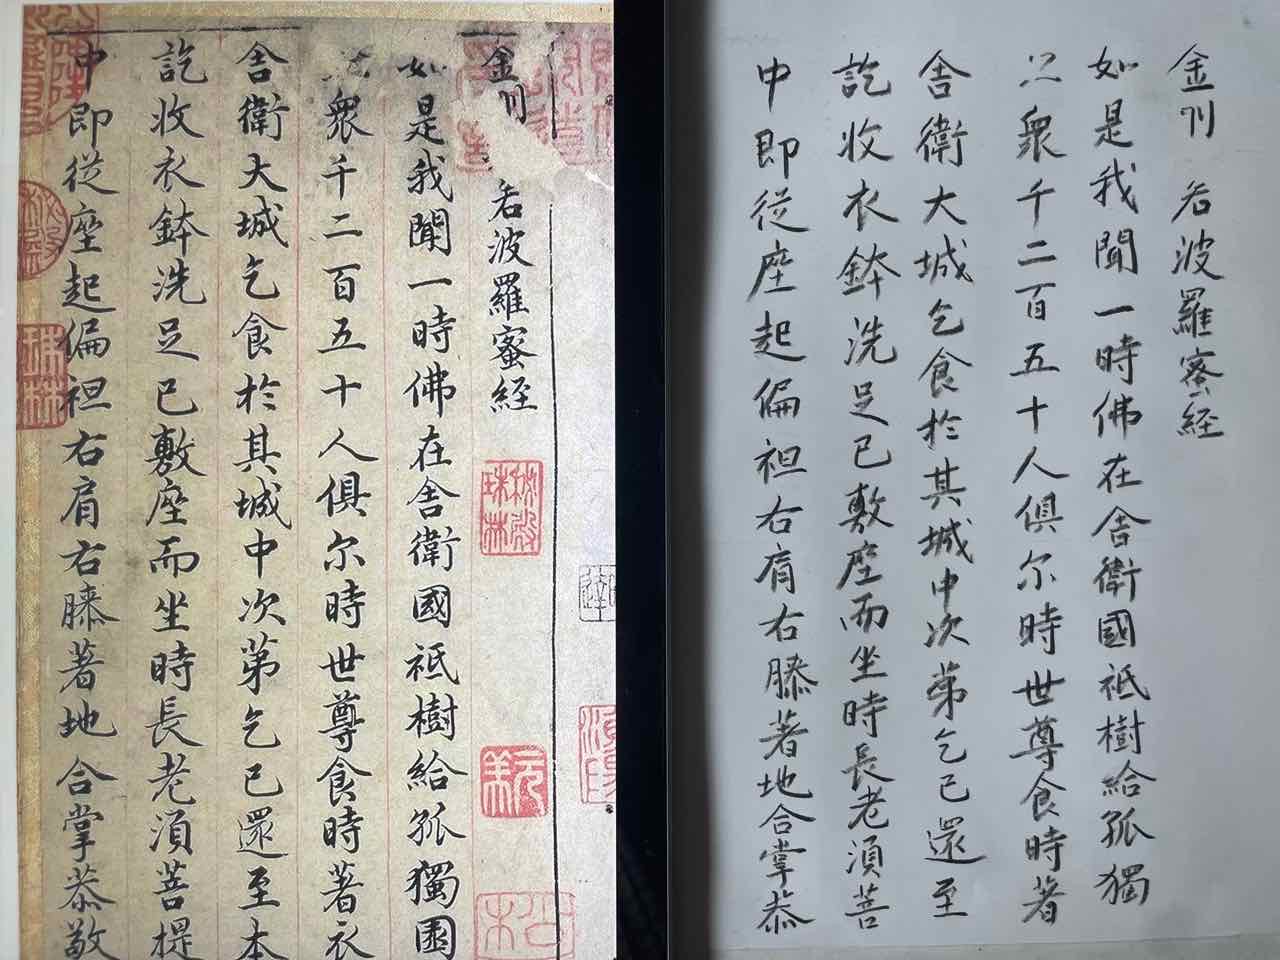 金刚若波羅蜜経
如是我聞一時佛在舍衛國祇樹給孤獨園
眾千二百五十人俱尔時世尊食時著衣
舍衛大城乞食於其城中次第乞已還至本
訖收衣鉢洗足已敷座而坐時長老湏菩提
中即從座起偏袒右肩右膝著地合掌恭敬
秘殿
珠林
金刂若波羅蜜経
如是我聞一時佛在舍衛國祇樹給孤獨
眾千二百五十人俱尔時世尊食時著
舍衛大城乞食於其城中次第乞已還至
訖收衣鉢洗足已敷座而坐時長老湏菩
中即從座起偏袒右肩右膝著地合掌恭